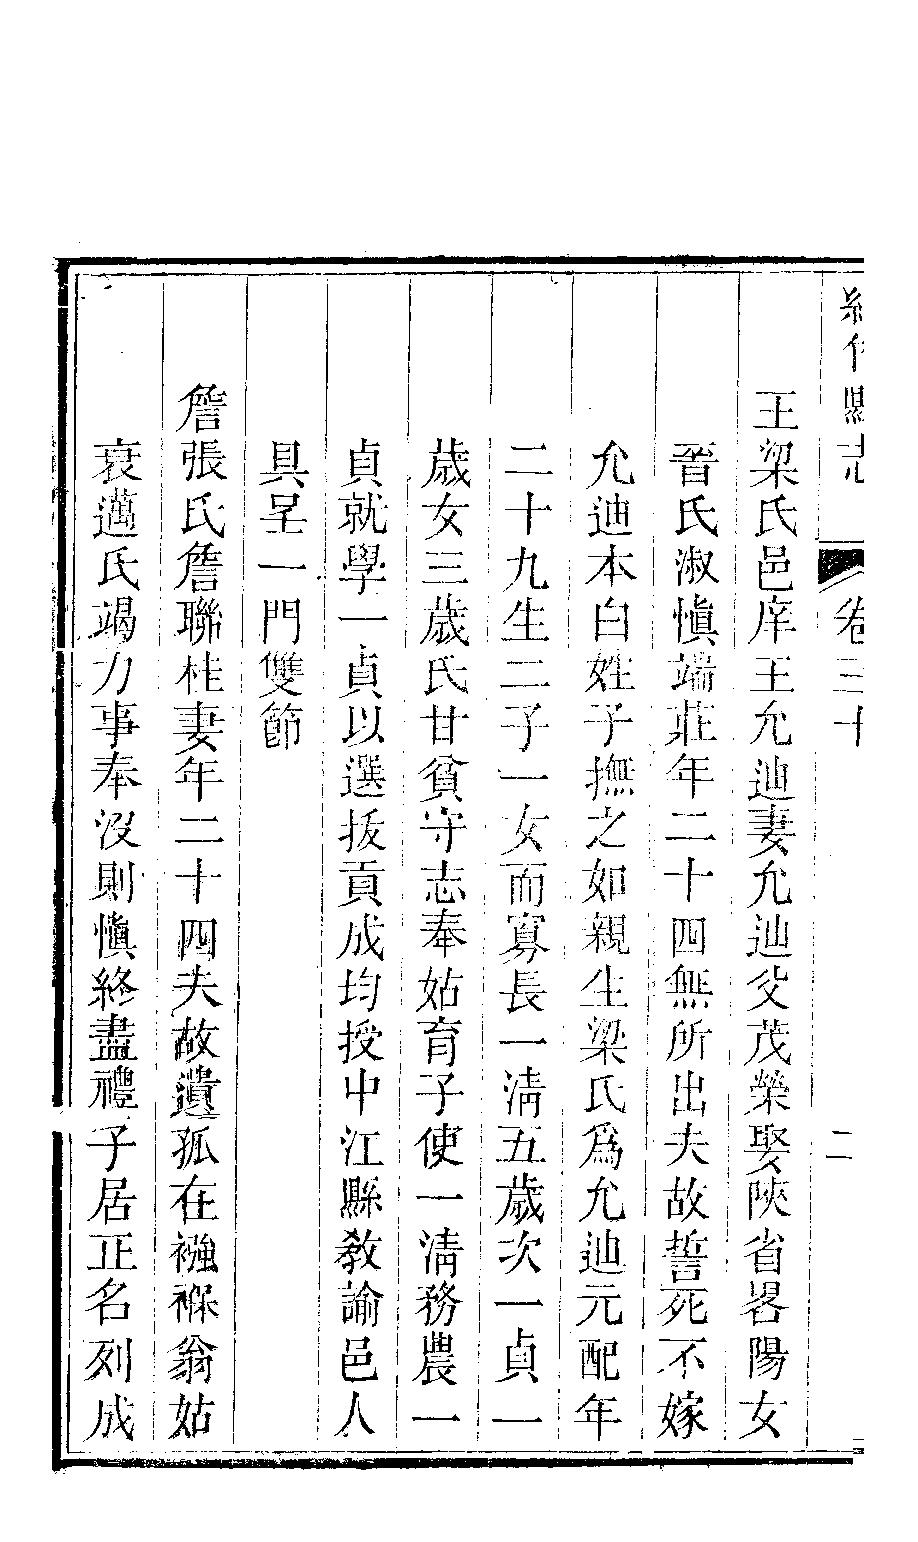 縣志 卷三十 二
王梁氏邑庠王允迪妻允迪父茂榮娶陝省畧陽女
晉氏淑慎端莊年二十四無所出夫故誓死不嫁
允迪本白姓子撫之如親生梁氏爲允迪元配年
二十九生二子一女而寡長一淸五歲次一貞一
歲女三歲氏甘貧守志奉姑育子使一淸務農一
貞就學一貞以選拔貢成均授中江縣教諭邑人
具呈一門雙節
詹張氏詹聯桂妻年二十四夫故遺孤在襁褓翁姑
衰邁氏竭力事奉沒則慎終盡禮子居正名列成